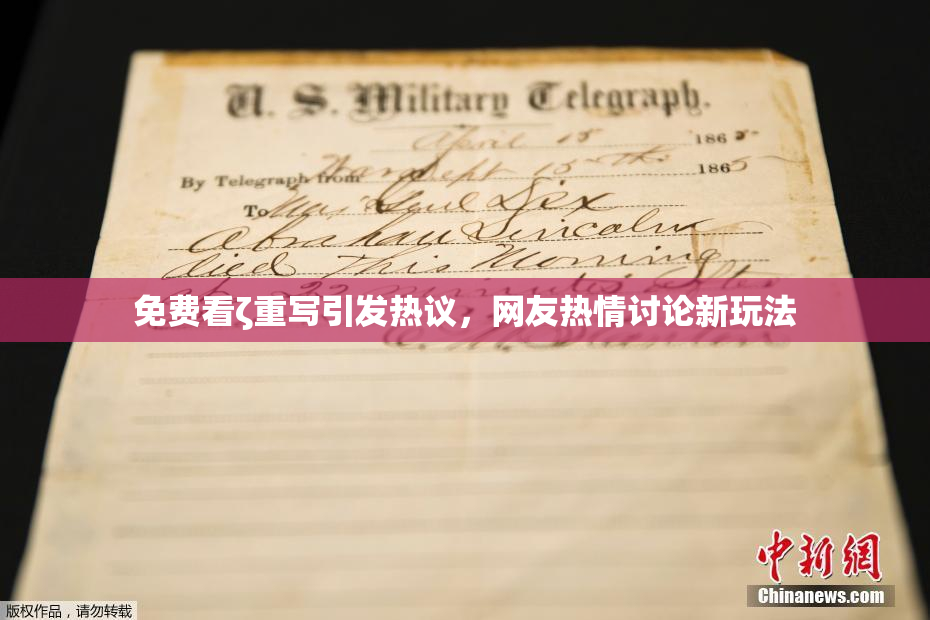 U. S. Military Telegraph.
April 15 1865
By Telegraph from War Dept 15th 1865
To Maj Genl Dix
Abraham Lincoln
died This Morning
at 22 minutes after
免费看ζ重写引发热议，网友热情讨论新玩法
E. M. Stanton
中新网
Chinanews.com
版权作品，请勿转载